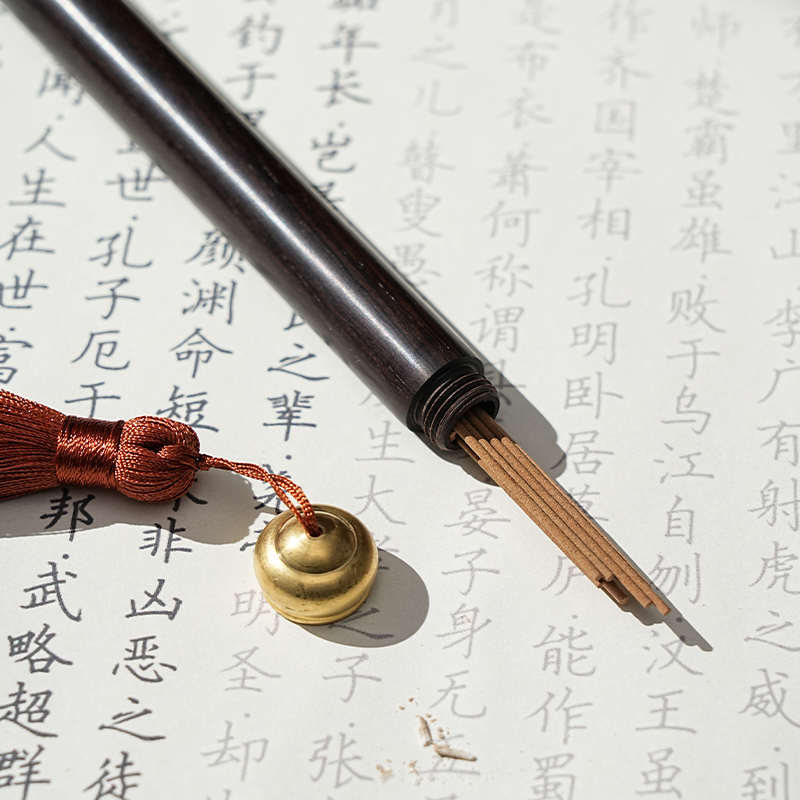 闻·人生在世·富
世·孔子厄于邦·武略超群
钓于颜渊命短非凶恶之徒
年长·岂是之辈明圣·却
之儿·瞽叟愚生大之子·张
是布衣·萧何称谓县晏子身无
作齐国宰相·孔明卧居草庐·能作蜀
师·楚霸虽雄·败于乌江自刎·汉王虽
里江山·李广有射虎之威·到